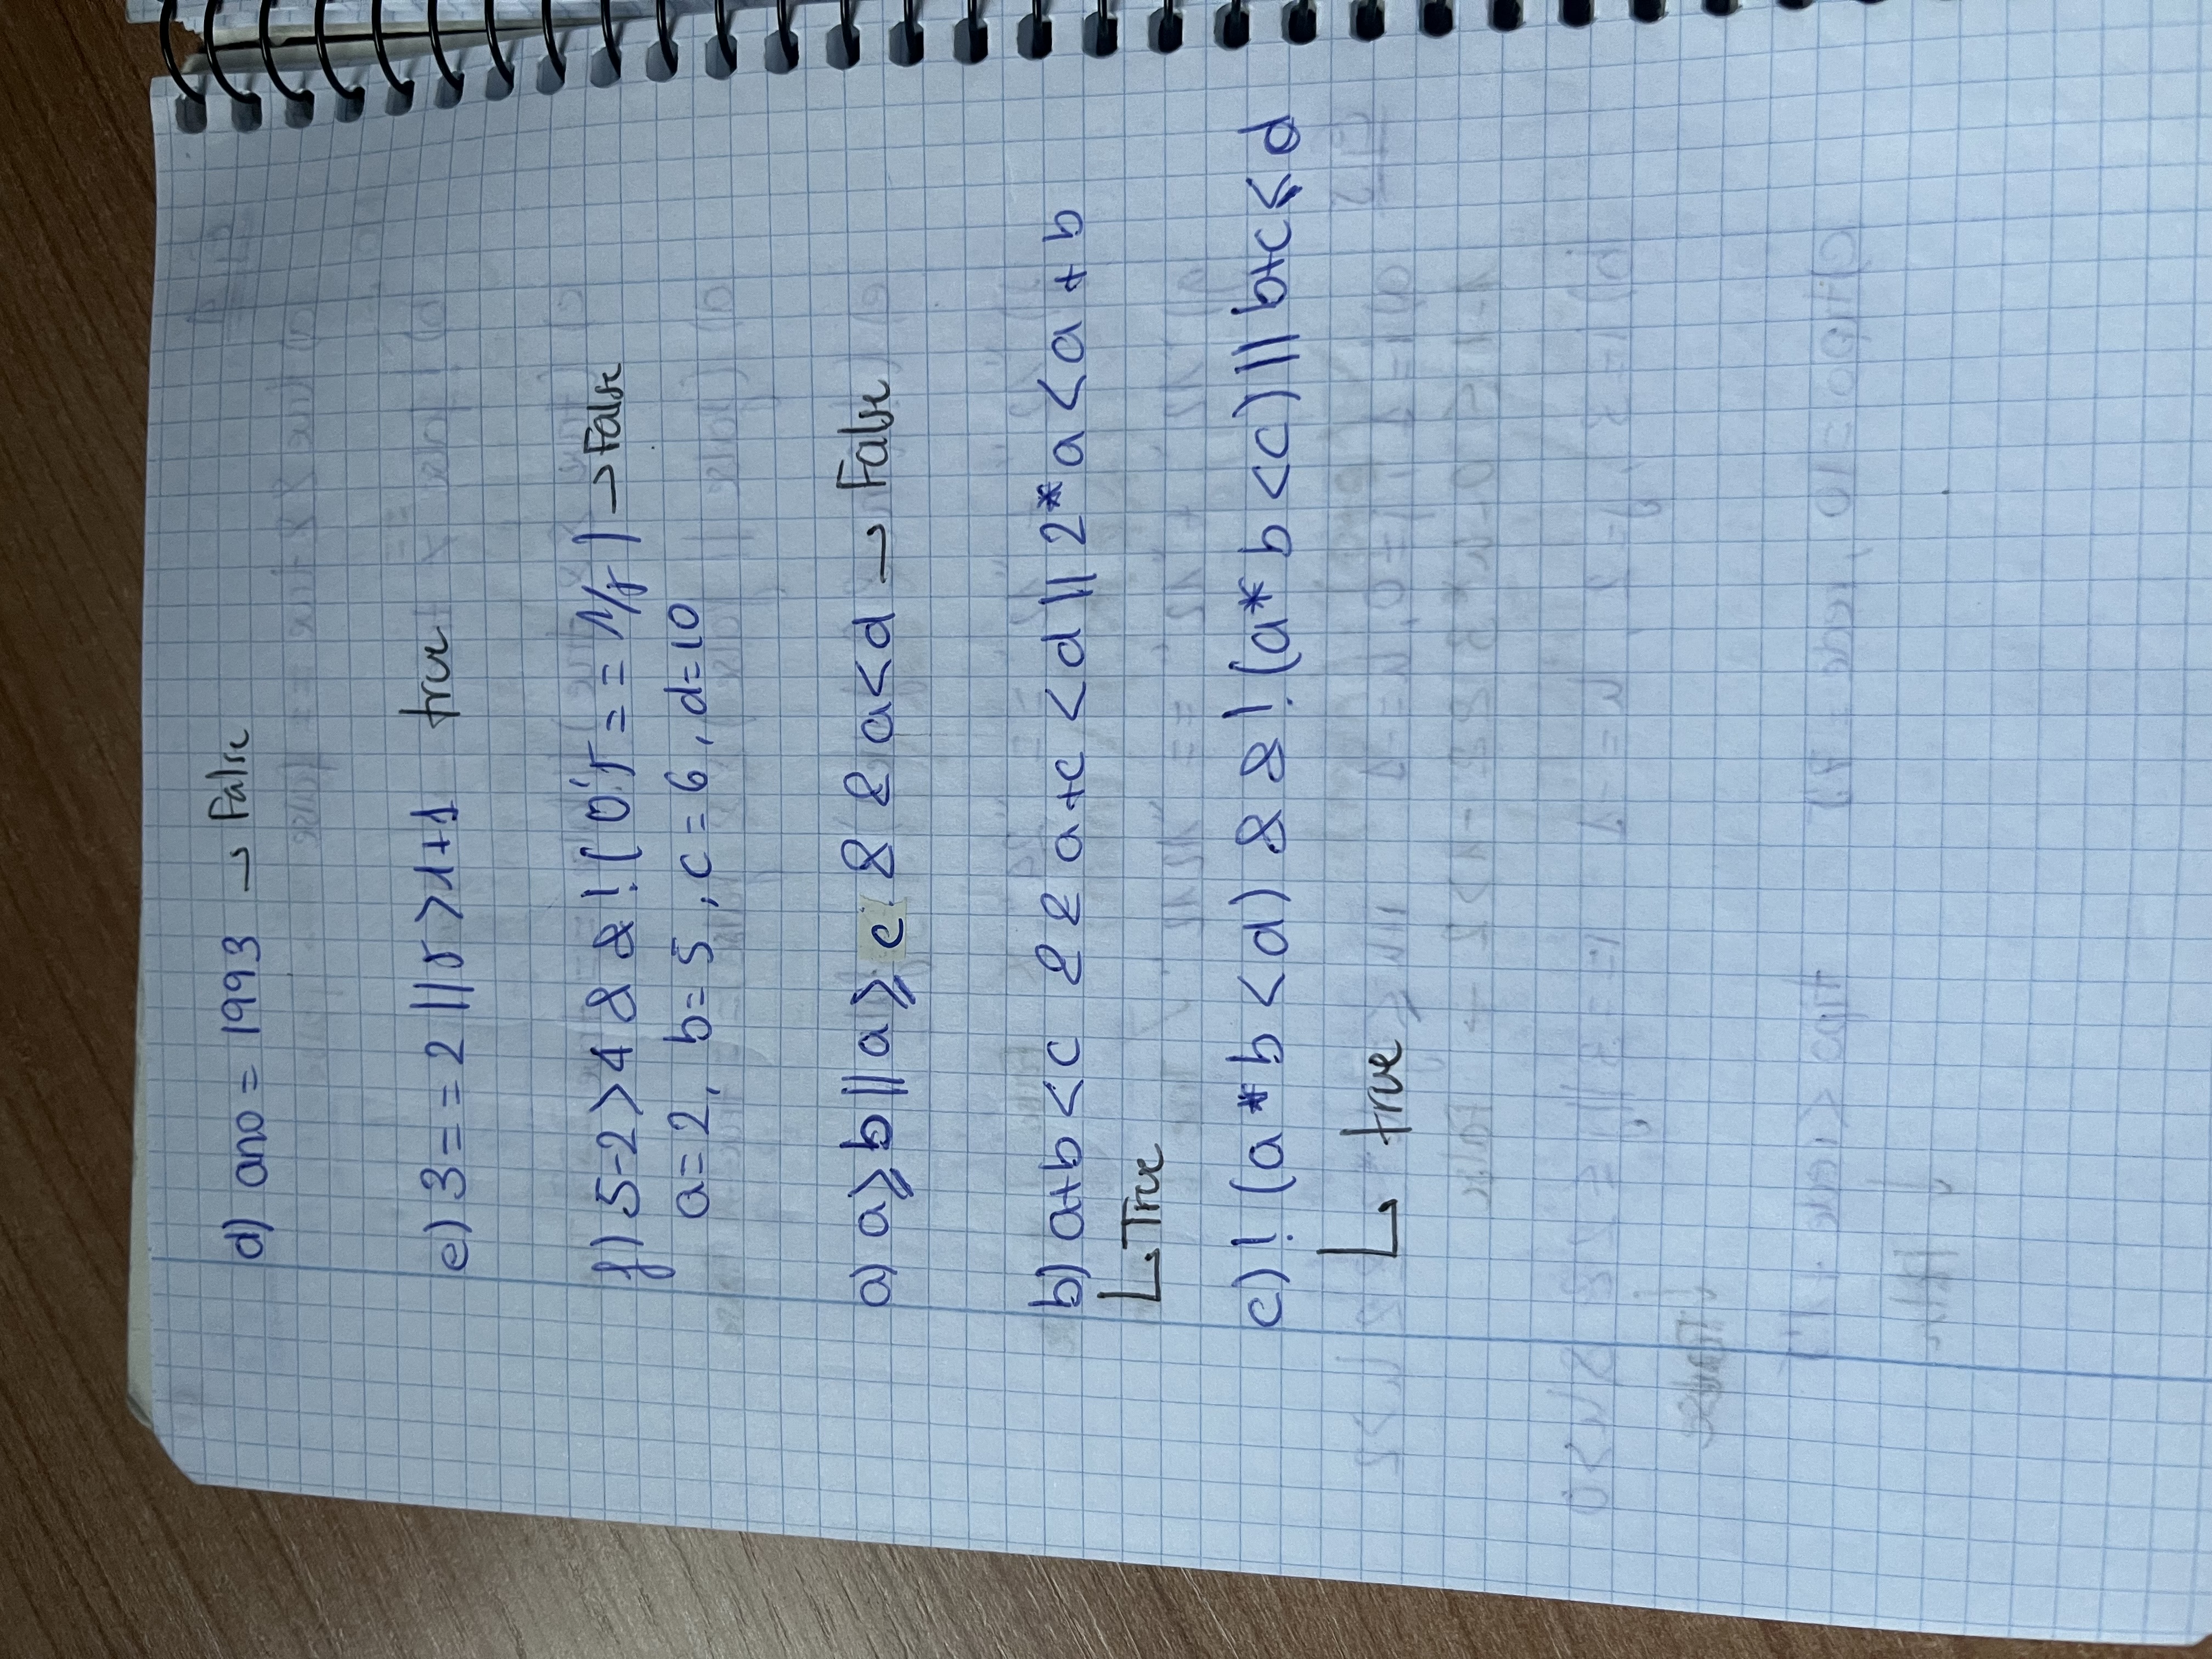 d) ano = 1993 → False
e) 3 == 2 || 5 > 1+1 true
f) 5-2 > 4 && !(0'5 == 1/5) → False
a=2, b=5, c=6, d=10
a) a ≥ b || a ≥ c && a<d → False
b) a+b < c && a+c < d || 2*a < a + b
↳ True
c) ! (a * b < d) && ! (a * b < c) || b+c ≤ d
↳ true